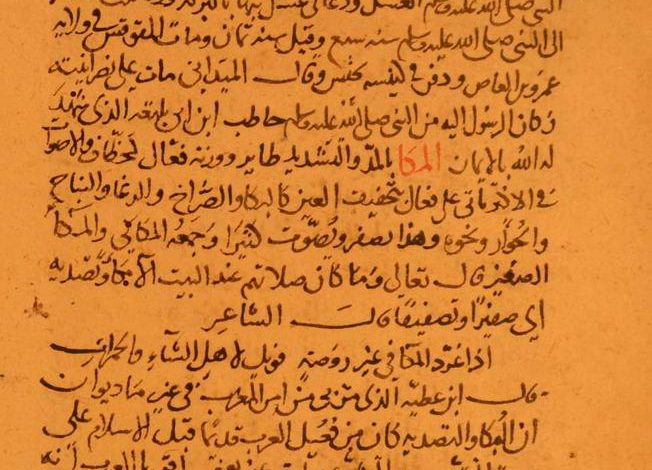 النبي صلى الله عليه وسلم العسل ودعا في عسل بنها بالبركة
الى النبي صلى الله عليه وسلم سنة سبع وقيل سنة ثمان ومات المقوقس في ولاية
عمرو بن العاص ودفن في كنيسة وقال الميداني مات على نصرانيته
وكان الرسول اليه من النبي صلى الله عليه وسلم حاطب ابن ابي بلتعة الذي شهد
له الله بالايمان المكا بالمد والتشديد طاير ووزنه فعال كخطاف والاصوات
في الاكثر تاتي على فعال بتخفيف العين كالبكا والصراخ والرغا والنباح
والخوار ونحوه وهذا يصفر ويصوت كثيرا وجمعه المكاكي والمكا
الصفير قال تعالى وما كان صلاتهم عند البيت الا مكا وتصديه
اي صفيرا وتصفيقا قال الشاعر
اذا غرد المكا في غير روضة فويل لاهل الشاء والحمرات
قال ابن عطية الذي من بي من امر العرب في غير ما ديوان
ان المكا والتصدية كان من فعل العرب قديما قبل الاسلام على